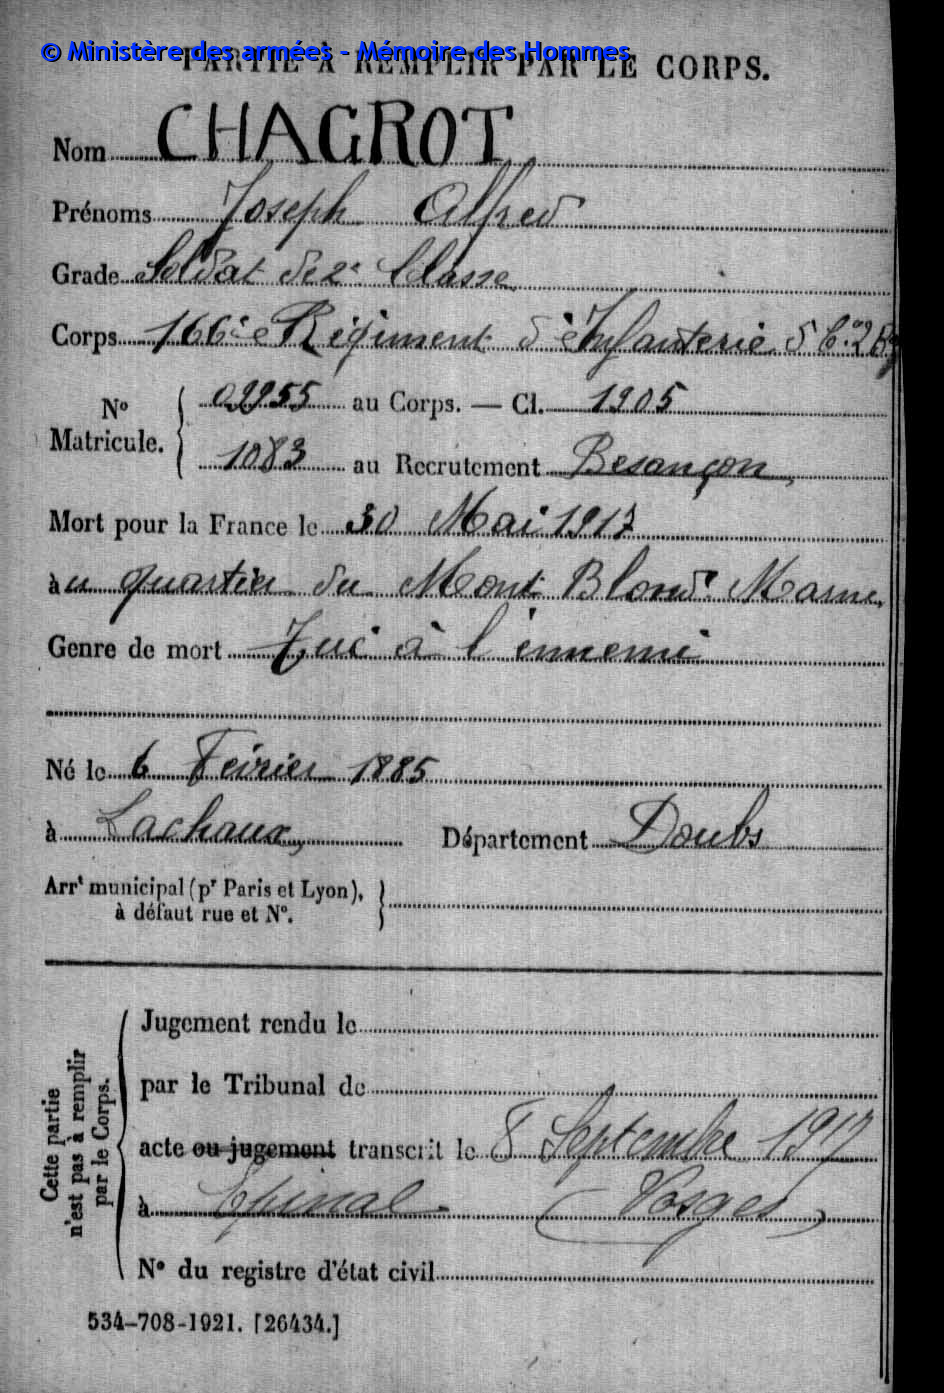 © Ministère des armées - Mémoire des Hommes
PARTIE À REMPLIR PAR LE CORPS.
Nom CHAGROT
Prénoms Joseph Alfred
Grade Soldat de 2e Classe
Corps 166ie Régiment d'Infanterie
Nº Matricule. { 02255 au Corps. — Cl. 1905
1083 au Recrutement Besançon
Mort pour la France le 30 Mai 1917
àu quartier du Mont Blond Marne
Genre de mort Tué à l'ennemi
Né le 6 Février 1885
à Lachaux, Département Doubs
Arrt municipal (pr Paris et Lyon), à défaut rue et Nº. }
Cette partie n'est pas à remplir par le Corps.
Jugement rendu le
par le Tribunal de
acte ou jugement transcrit le 8 Septembre 1917
à Epinal (Vosges)
Nº du registre d'état civil
534-708-1921. [26434.]